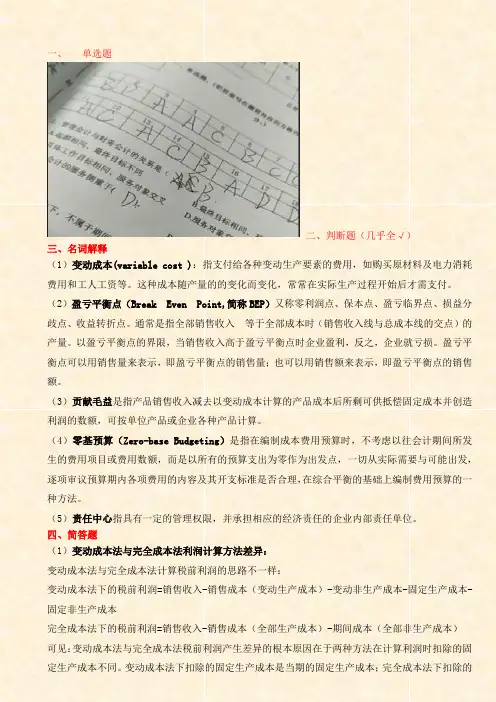 一、 单选题
B B A A C B C
10 13 14 15 16 17
A C A C B A D D
管理会计与财务会计的关系是(
最终目标不同
工作目标相同，服务对象交叉
B.最终目标相同，
D.服务对象
会计的服务侧重于( D ).
下，不属于
二、判断题（几乎全√）
三、名词解释
（1）变动成本(variable cost )：指支付给各种变动生产要素的费用，如购买原材料及电力消耗
费用和工人工资等。这种成本随产量的的变化而变化，常常在实际生产过程开始后才需支付。
（2）盈亏平衡点（Break Even Point,简称BEP）又称零利润点、保本点、盈亏临界点、损益分
歧点、收益转折点。通常是指全部销售收入 等于全部成本时（销售收入线与总成本线的交点）的
产量。以盈亏平衡点的界限，当销售收入高于盈亏平衡点时企业盈利，反之，企业就亏损。盈亏平
衡点可以用销售量来表示，即盈亏平衡点的销售量；也可以用销售额来表示，即盈亏平衡点的销售
额。
（3）贡献毛益是指产品销售收入减去以变动成本计算的产品成本后所剩可供抵偿固定成本并创造
利润的数额，可按单位产品或企业各种产品计算。
（4）零基预算（Zero-base Budgeting）是指在编制成本费用预算时，不考虑以往会计期间所发
生的费用项目或费用数额，而是以所有的预算支出为零作为出发点，一切从实际需要与可能出发，
逐项审议预算期内各项费用的内容及其开支标准是否合理，在综合平衡的基础上编制费用预算的一
种方法。
（5）责任中心指具有一定的管理权限，并承担相应的经济责任的企业内部责任单位。
四、简答题
（1）变动成本法与完全成本法利润计算方法差异：
变动成本法与完全成本法计算税前利润的思路不一样：
变动成本法下的税前利润=销售收入-销售成本（变动生产成本）-变动非生产成本-固定生产成本-
固定非生产成本
完全成本法下的税前利润=销售收入-销售成本（全部生产成本）-期间成本（全部非生产成本）
可见：变动成本法与完全成本法税前利润产生差异的根本原因在于两种方法在计算利润时扣除的固
定生产成本不同。变动成本法下扣除的固定生产成本是当期的固定生产成本；完全成本法下扣除的